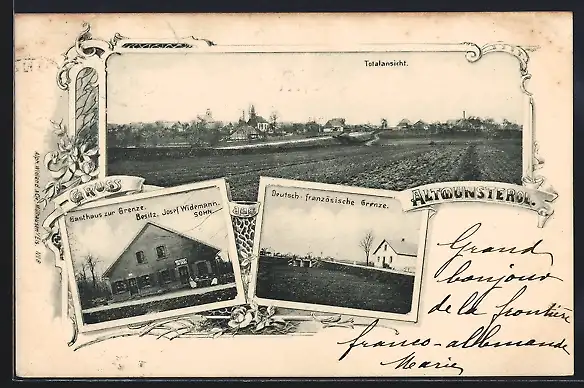 Totalansicht.
GRUSS
AUS
ALTMÜNSTEROL.
Gasthaus zur Grenze.
Besitz. Josef Widemann.
SOHN.
Deutsch-französische Grenze.
Grand
bonjour
de la frontière
franco-allemande
Marie